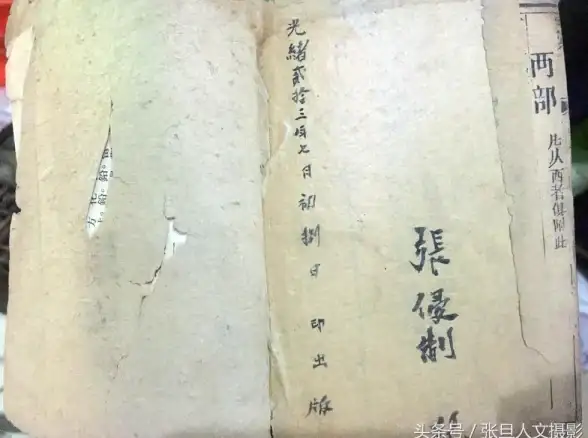 西部
凡从西者俱附此
張優制
光緒貳拾三年七月初捌日 印出版
头条号 / 张旦人文摄影